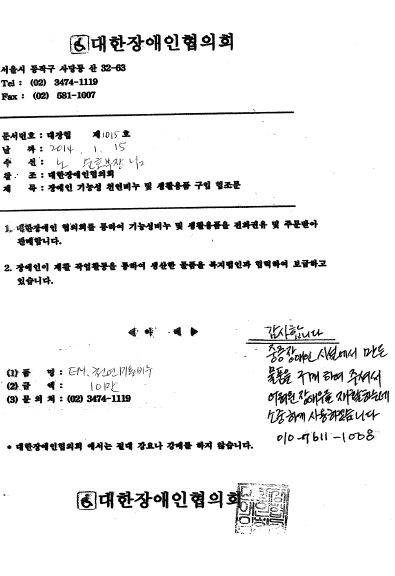 대한장애인협의회
서울시 동작구 사당동 산 32-63
Tel : (02) 3474-1119
Fax : (02) 581-1007
문서번호 : 대장협 제1015호
날 짜 : 2014. 1. 15
수 신 : 노
참 조 : 대한장애인협의회
제 목 : 장애인 기능성 천연비누 및 생활용품 구입 협조문
1. 대한장애인 협의회를 통하여 기능성비누 및 생활용품을 전화권유 및 주문받아
판매합니다.
2. 장애인이 재활 작업활동을 통하여 생산한 물품을 복지법인과 협력하여 보급하고
있습니다.
◀ 아 래 ▶
(1) 품 명 : EM. 천연기능비누
(2) 금 액 : 10만
(3) 문 의 처 : (02) 3474-1119
감사합니다
중증장애인 시설에서 만든
물품을 구매 하여 주셔서
어려운 장애우들 재활하는데
소중하게 사용하겠습니다
010-9611-1008
* 대한장애인협의회 에서는 절대 강요나 강매를 하지 않습니다.
대한장애인협의회